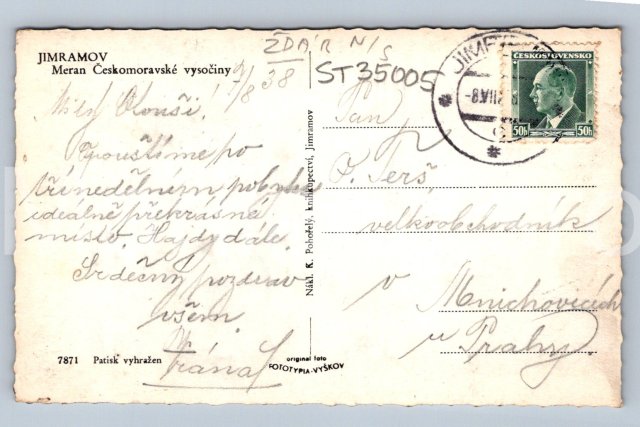 JIMRAMOV
Meran Českomoravské vysočiny
ŽDÁR N/S
ST35005
7/8 38
Milý Olouši!
Opouštíme po
třínedělním pobytu
ideálně překrásné
místo. Hajdy dále.
Srdečný pozdrav
všem
7871 Patisk vyhražen
Nákl. K. Pohořelý, knihkupectví, Jimramov
original foto
FOTOTYPIA-VYŠKOV
ČESKOSLOVENSKO
50h 50h
Pan
J. Terš,
velkoobchodník
v
Mnichovicích
u Prahy.